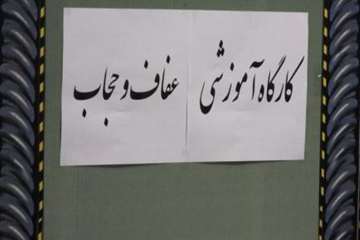 کارگاه آموزشی عفاف و حجاب